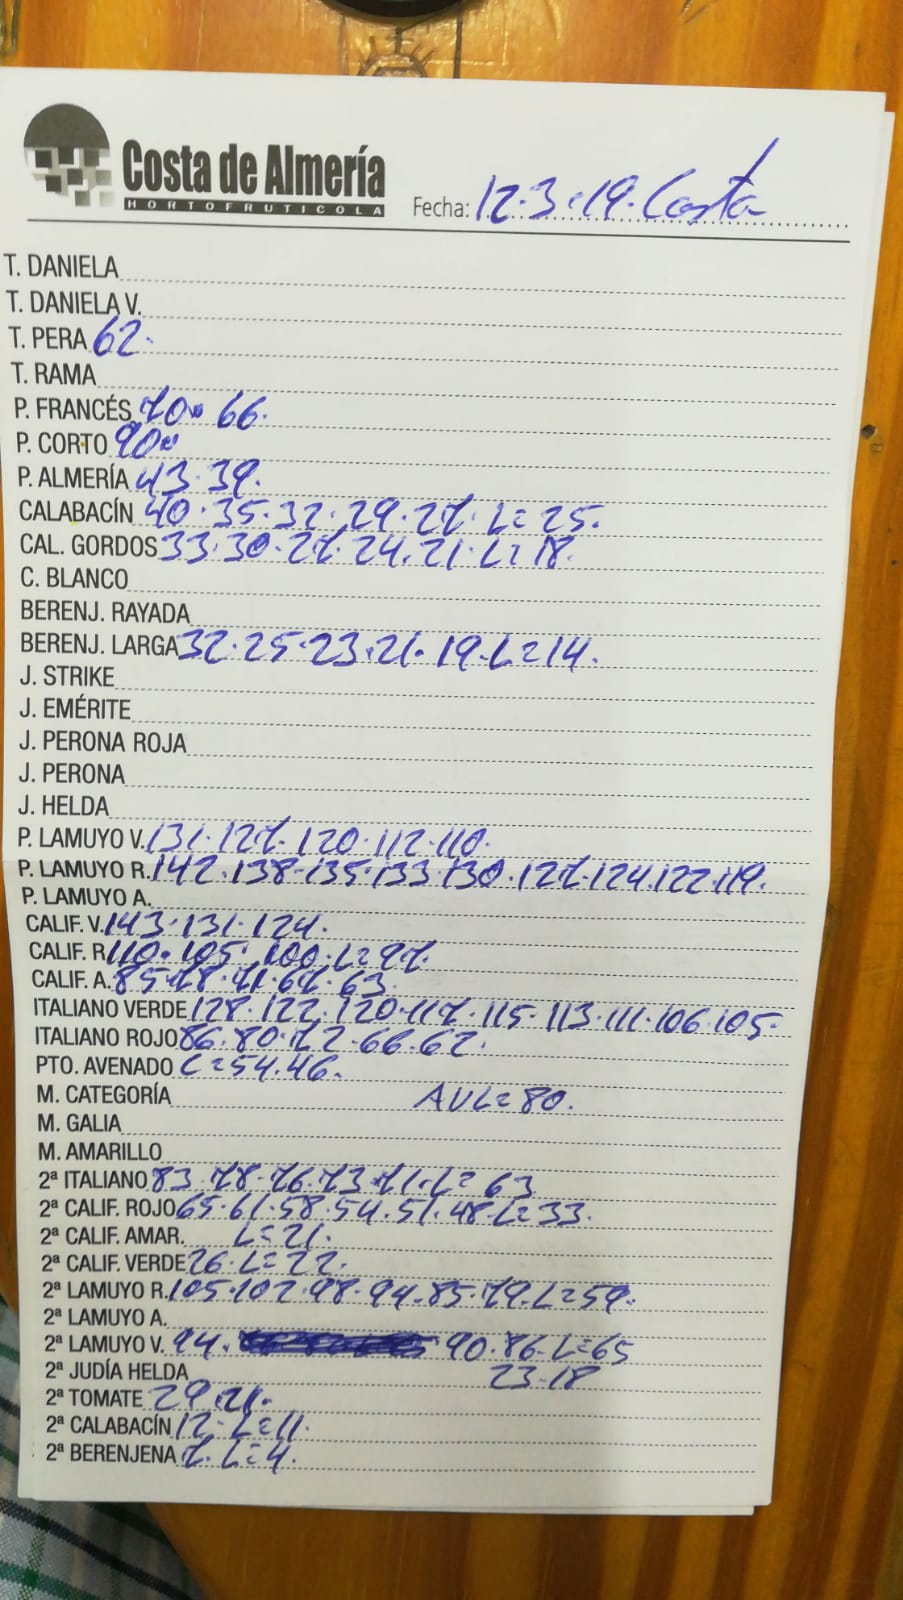 Costa de Almería
HORTOFRUTICOLA
Fecha: 12.3.19. Costa
T. DANIELA
T. DANIELA V.
T. PERA 62.
T. RAMA
P. FRANCÉS 70. 66.
P. CORTO 90.
P. ALMERÍA 43.39.
CALABACÍN 40.35.32.29.27. L=25.
CAL. GORDOS 33.30.27.24.21. L=18.
C. BLANCO
BERENJ. RAYADA
BERENJ. LARGA 32.25.23.21.19. L=14.
J. STRIKE
J. EMÉRITE
J. PERONA ROJA
J. PERONA
J. HELDA
P. LAMUYO V. 131.127.120.112.110.
P. LAMUYO R. 142.138.135.133.130.127.124.122.119.
P. LAMUYO A.
CALIF. V. 143.131.124.
CALIF. R 110.105.100. L=97.
CALIF. A. 85.78.71.67.63.
ITALIANO VERDE 128.122.120.117.115.113.111.106.105.
ITALIANO ROJO 86.80.72.66.62.
PTO. AVENADO C=54.46.
M. CATEGORÍA AVL=80.
M. GALIA
M. AMARILLO
2ª ITALIANO 83.78.76.73.71. L=63
2ª CALIF. ROJO 65.61.58.54.51.48. L=33.
2ª CALIF. AMAR. L=21.
2ª CALIF. VERDE 26. L=22.
2ª LAMUYO R. 105.102.98.94.85.79. L=59.
2ª LAMUYO A.
2ª LAMUYO V. 94. 90.86. L=65
2ª JUDÍA HELDA 23.18
2ª TOMATE 29.21.
2ª CALABACÍN 12. L=11.
2ª BERENJENA 7. L=4.